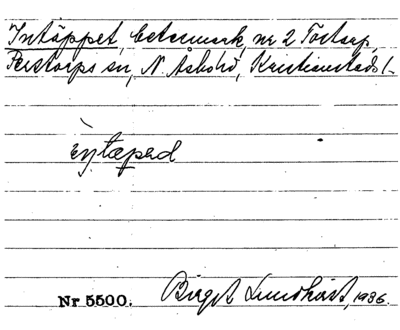 Intäppet, betesmark, nr 2 Torstarp,
Perstorps sn, N. Åsbo hd, Kristianstads l.
ìntæped
Nr 5500. Birgit Lundkvist, 1936.